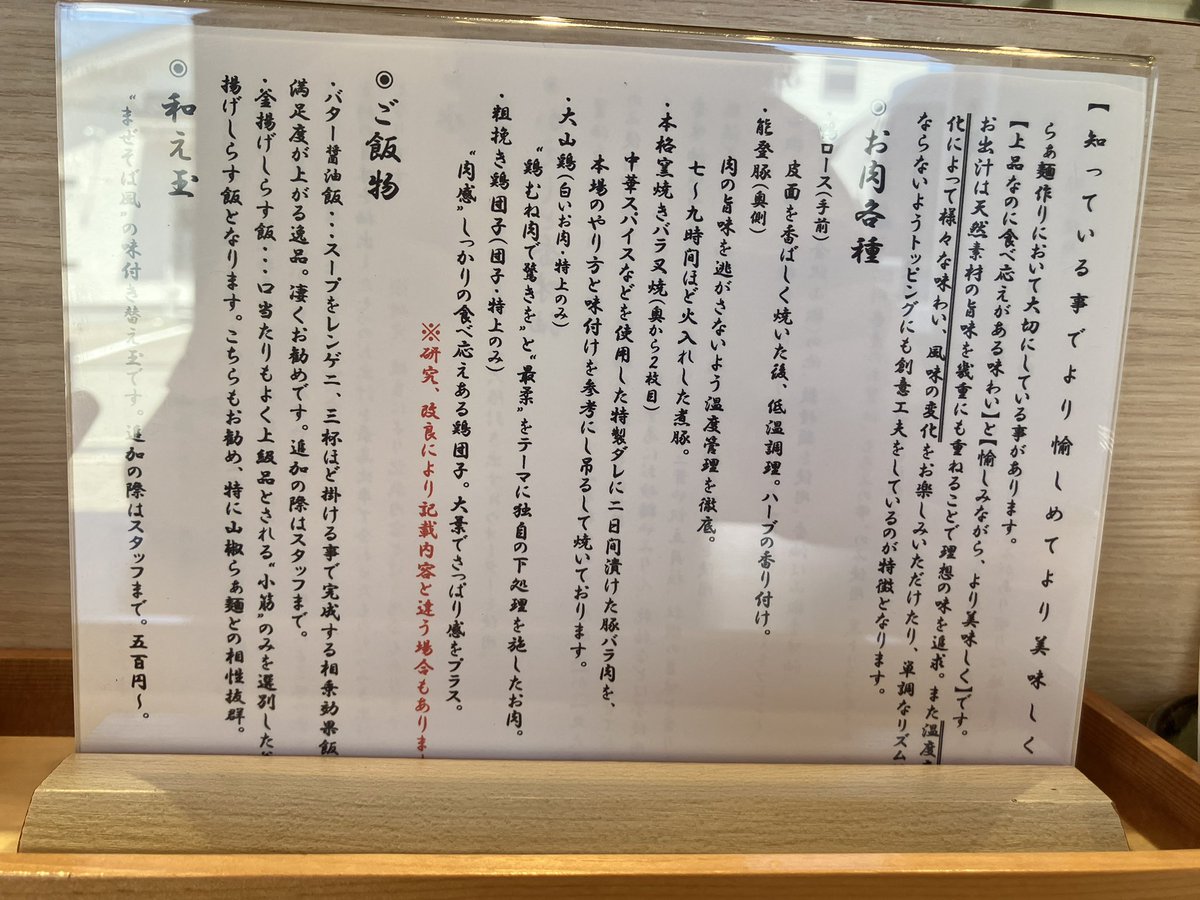 【知っている事でより愉しめてより美味しく
らぁ麺作りにおいて大切にしている事があります。
【上品なのに食べ応えがある味わい】と【愉しみながら、より美味しく】です。
お出汁は天然素材の旨味を幾重にも重ねることで理想の味を追求。また温度
化によって様々な味わい、風味の変化をお楽しみいただけたり、単調なリズム
ならないようトッピングにも創意工夫をしているのが特徴となります。
◉お肉各種
ロース(手前)
皮面を香ばしく焼いた後、低温調理。ハーブの香り付け。
・能登豚(奥側)
肉の旨味を逃がさないよう温度管理を徹底。
七〜九時間ほど火入れした煮豚。
・本格窯焼きバラ叉焼(奥から2枚目)
中華スパイスなどを使用した特製ダレに二日間漬けた豚バラ肉を、
本場のやり方と味付けを参考にし吊るして焼いております。
・大山鶏(白いお肉・特上のみ)
“鶏むね肉で驚きを”と“最柔”をテーマに独自の下処理を施したお肉。
・粗挽き鶏団子(団子・特上のみ)
“肉感”しっかりの食べ応えある鶏団子。大葉でさっぱり感をプラス。
※研究、改良により記載内容と違う場合もありま
◉ご飯物
・バター醤油飯・・・スープをレンゲ二、三杯ほど掛ける事で完成する相乗効果飯
満足度が上がる逸品。凄くお勧めです。追加の際はスタッフまで。
・釜揚げしらす飯・・・口当たりもよく上級品とされる“小筋”のみを選別した
揚げしらす飯となります。こちらもお勧め、特に山椒らぁ麺との相性抜群。
◉和え玉
“まぜそば風”の味付き替え玉です。追加の際はスタッフまで。五百円〜。